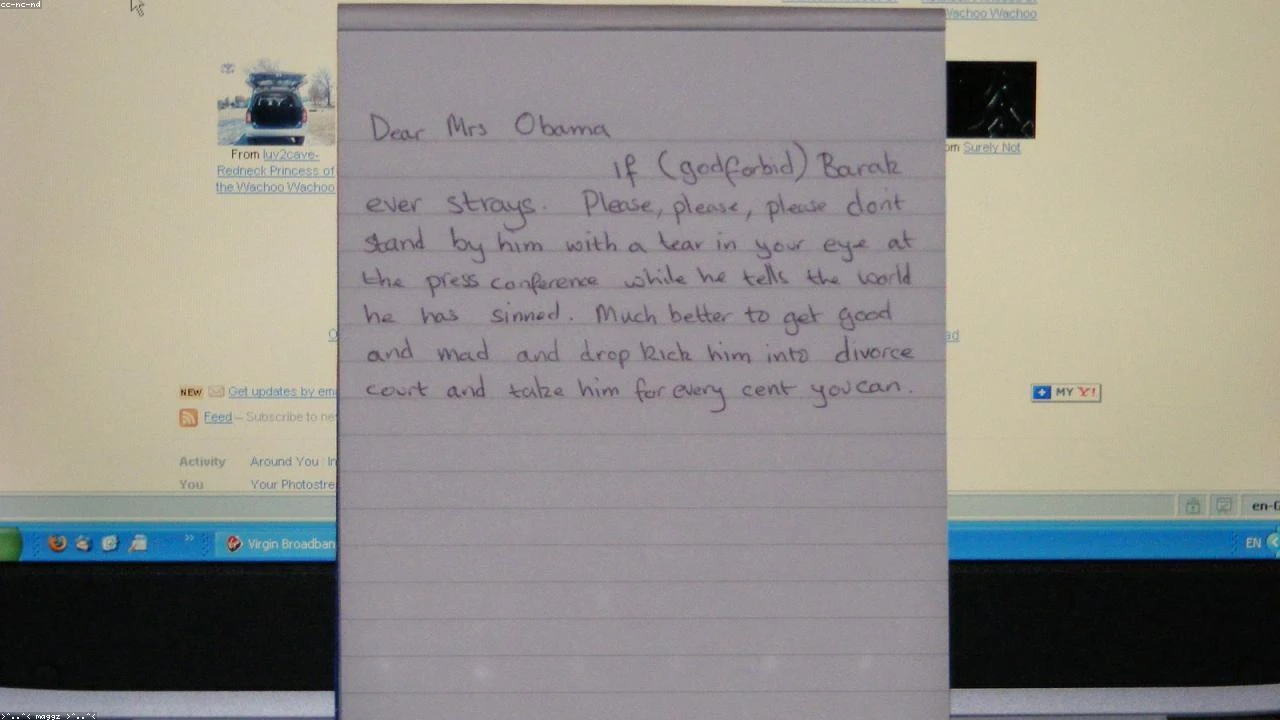 cc-nc-nd
Wachoo Wachoo
From luv2cave-
Redneck Princess of
the Wachoo Wachoo
om Surely Not
Dear Mrs Obama
If (godforbid) Barak
ever strays. Please, please, please don't
stand by him with a tear in your eye at
the press conference while he tells the world
he has sinned. Much better to get good
and mad and drop kick him into divorce
court and take him for every cent you can.
NEW Get updates by em
MY Y!
Feed – Subscribe to ne
Activity Around You In
You Your Photostre
en-G
Virgin Broadban
EN
>^..^< maggz >^..^<